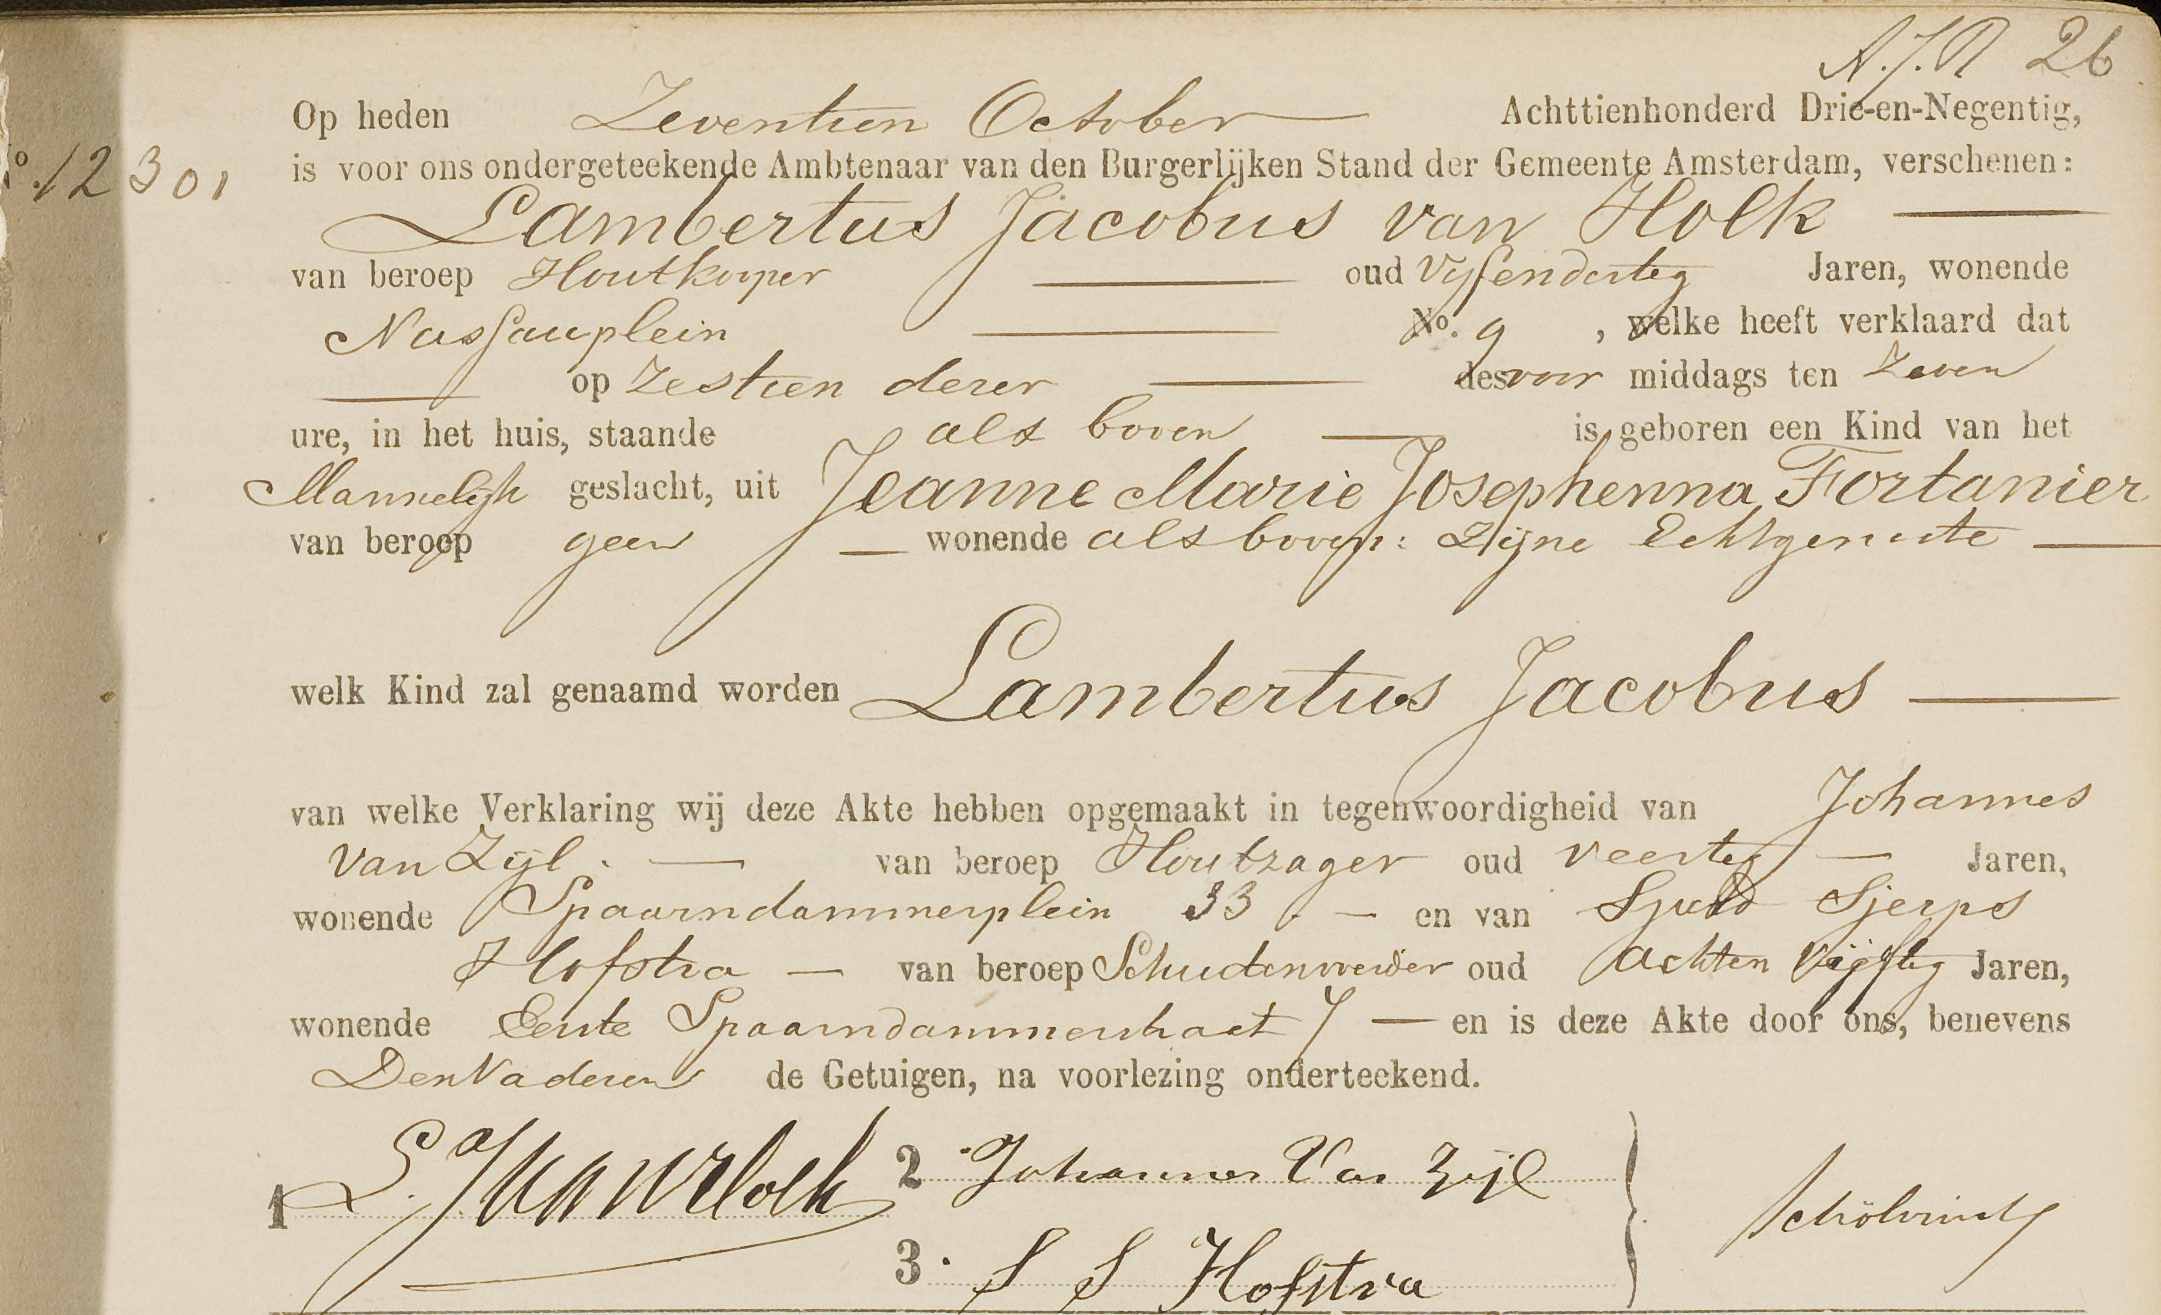 A.J.N 26
Op heden Zeventien October Achttienhonderd Drie-en-Negentig,
No. 12301 is voor ons ondergeteekende Ambtenaar van den Burgerlijken Stand der Gemeente Amsterdam, verschenen:
Lambertus Jacobus van Holk
van beroep Houtkooper oud Vijfendertig Jaren, wonende
Nassauplein No. 9 , welke heeft verklaard dat
op Zestien dezer des voor middags ten Zeven
ure, in het huis, staande als boven is geboren een Kind van het
Mannelijk geslacht, uit Jeanne Marie Josephenna Fortanier
van beroep geen wonende als boven: Zijne Echtgenoote
welk Kind zal genaamd worden Lambertus Jacobus
van welke Verklaring wij deze Akte hebben opgemaakt in tegenwoordigheid van Johannes
van Zijl. van beroep Houtzager oud veertig Jaren,
wonende Spaarndammerplein 33. en van Sjerps
Hofstra van beroep Schuitenvoerder oud Achten Vijftig Jaren,
wonende Eerste Spaarndammerstraat 7 en is deze Akte door ons, benevens
Den Vader en de Getuigen, na voorlezing onderteekend.
1 L. J. van Holk 2 Johannes Van Zijl
3. S S Hofstra